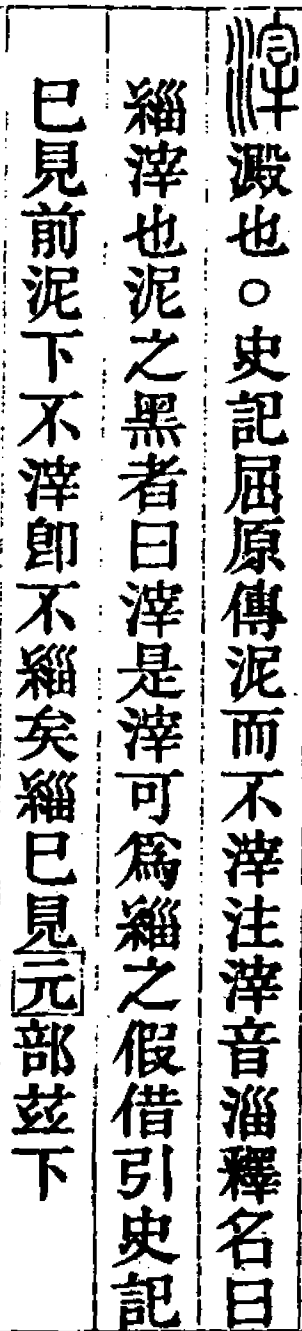 滓澱也○史記屈原傳泥而不滓注滓音淄釋名曰
緇滓也泥之黑者曰滓是滓可爲緇之假借引史記
巳見前泥下不滓卽不緇矣緇巳見元部玆下